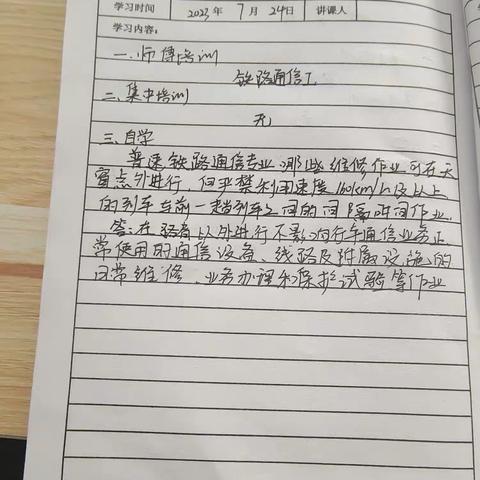 学习时间 2023年7月24日 讲课人
学习内容:
一、师傅培训
铁路通信工
二、集中培训
无
三、自学
普速铁路通信专业哪些维修作业可在天
窗点外进行,但严禁利用速度160km/h及以上
的列车与前一趟列车之间的间隔时间作业.
答:在路肩以外进行不影响行车通信业务正
常使用的通信设备、线路及附属设施的
日常维修、业务办理和保护试验等作业